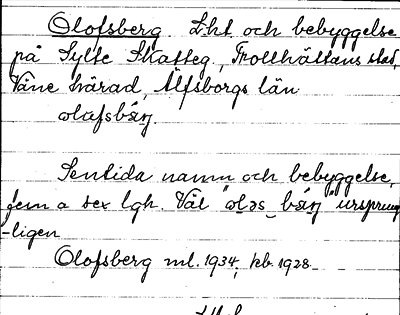 Olofsberg. Lht och bebyggelse
på Sylte Skatteg., Trollhättans stad,
Väne härad, Älfsborgs län
olåfsbárj.
Sentida namn och bebyggelse,
fem a sex lgh. Väl "oləs bárj" ursprung
-ligen
Olofsberg ml. 1934, kb. 1928